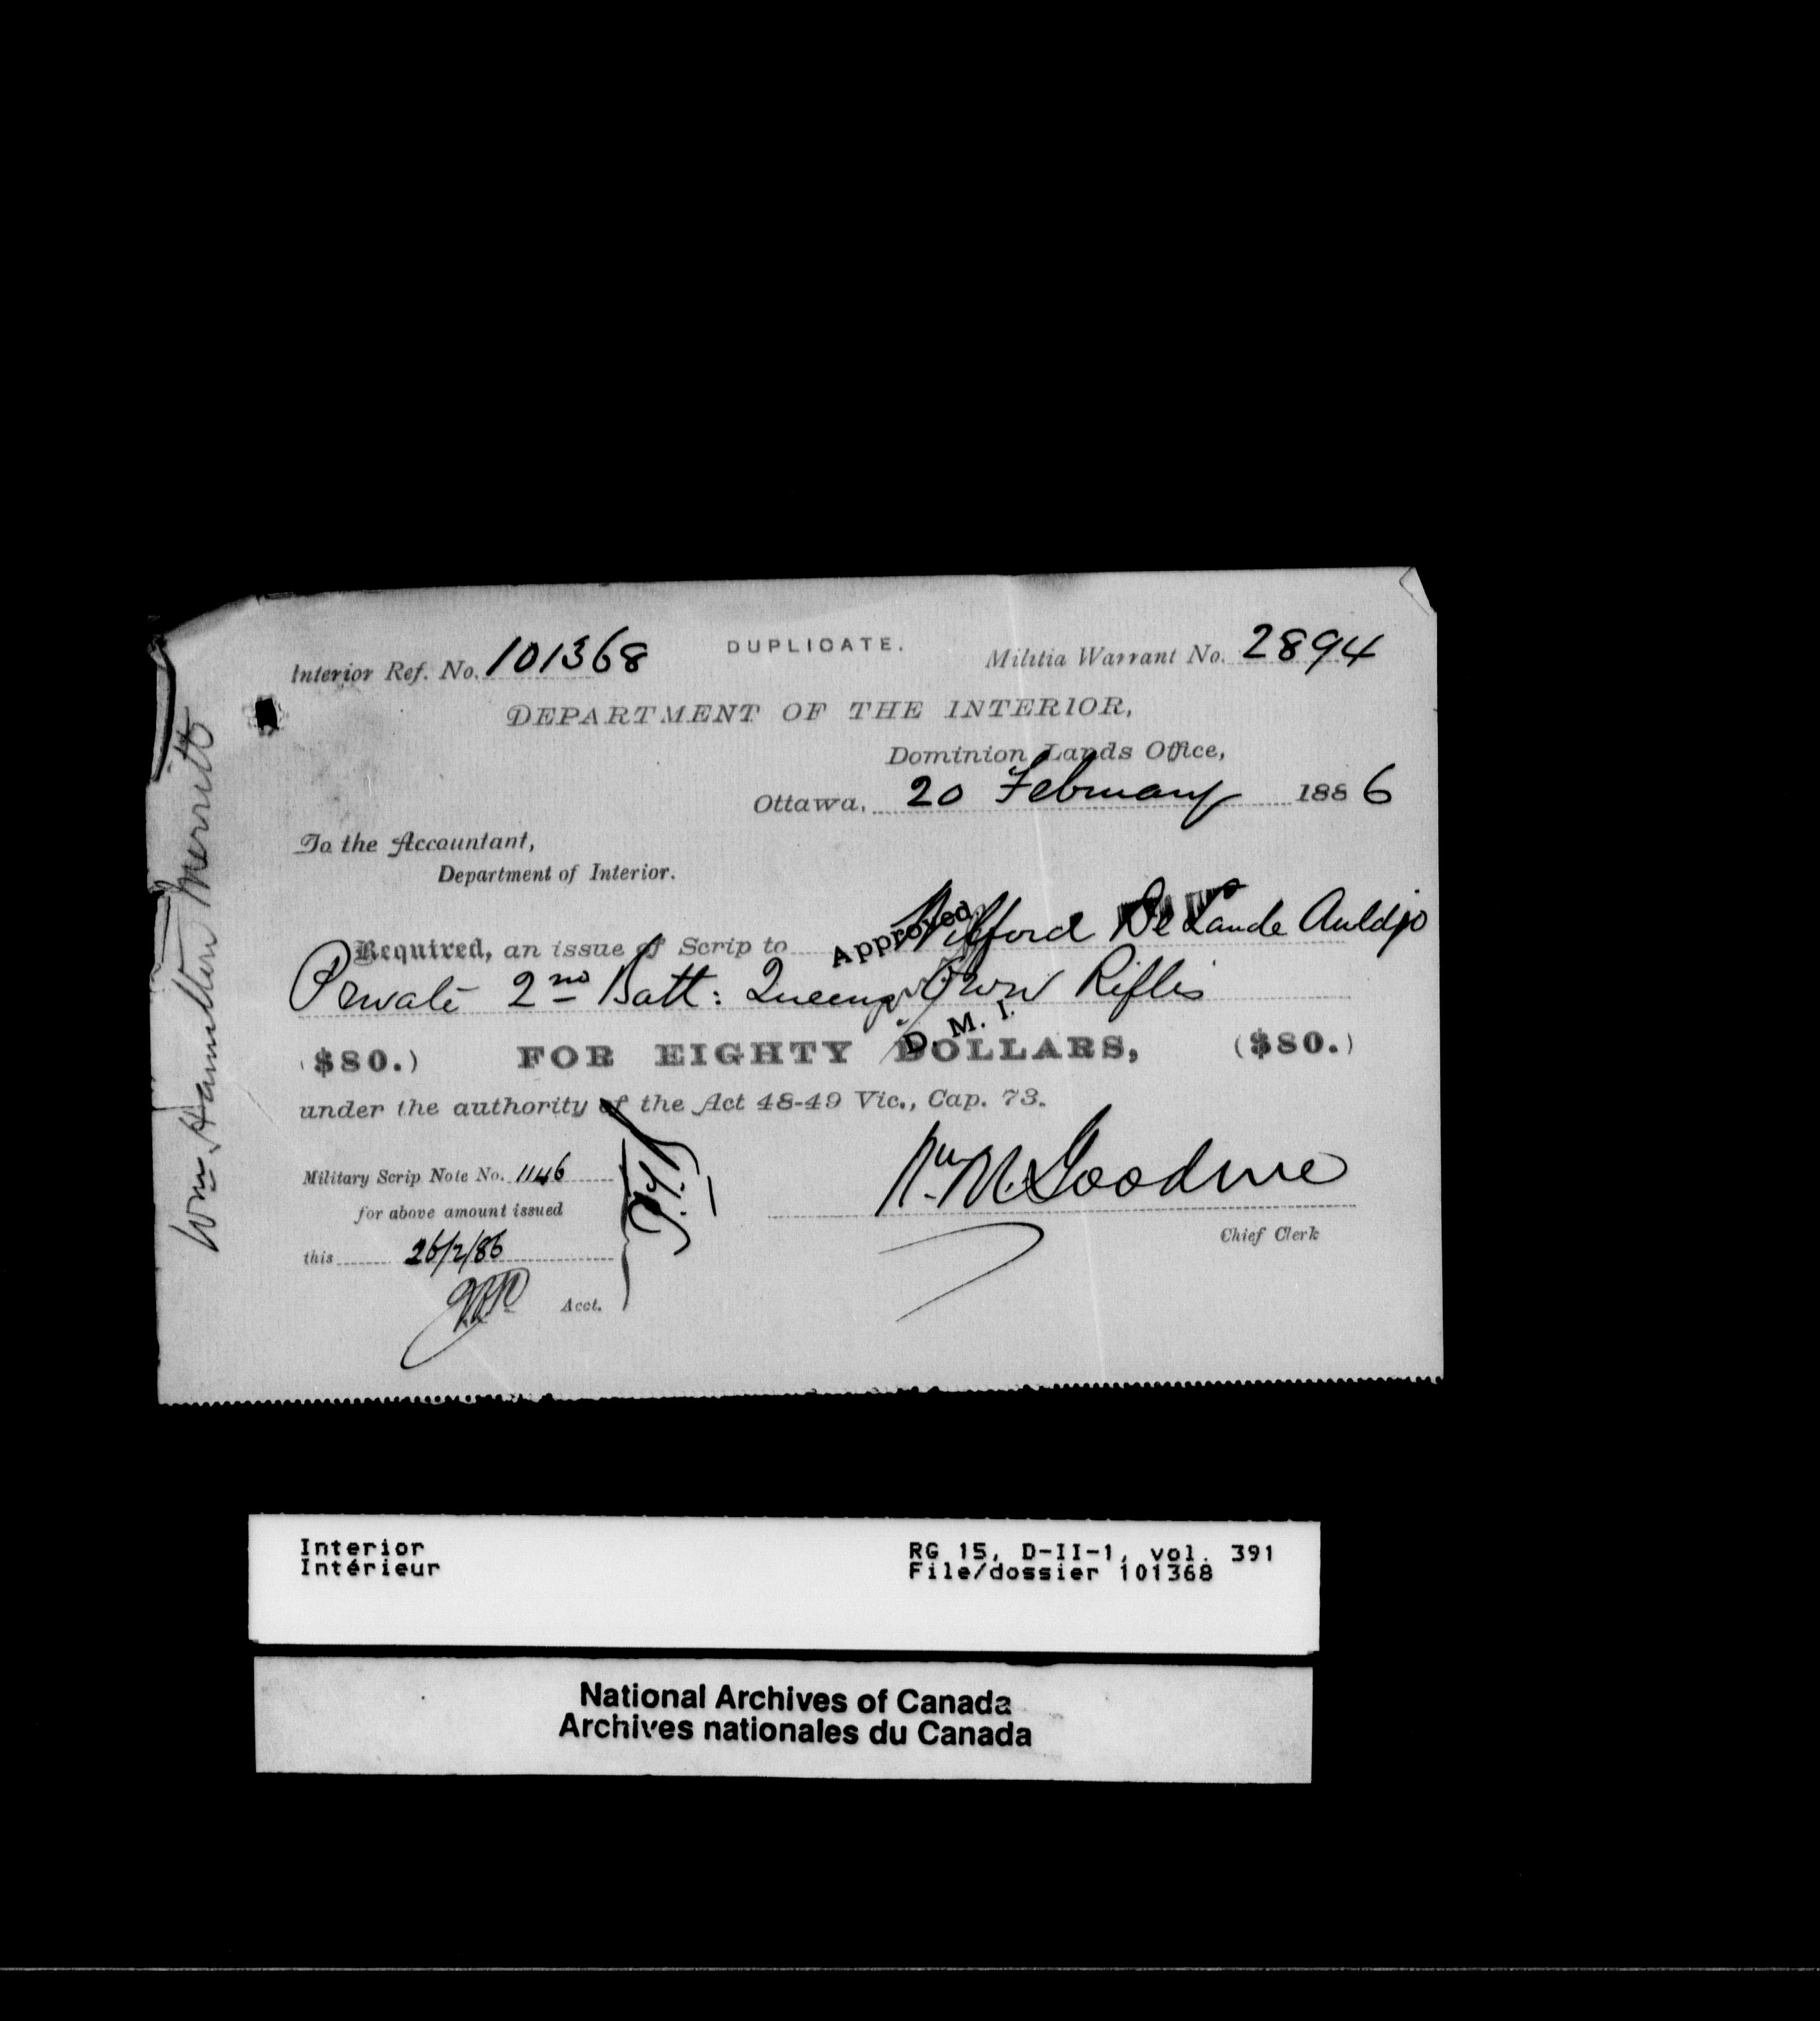 DUPLICATE.
Interior Ref. No. 101368
Militia Warrant No. 2894
DEPARTMENT OF THE INTERIOR,
Dominion Lands Office,
Ottawa, 20 February 1886
To the Accountant,
Department of Interior.
Approved
Required, an issue of Scrip to Wilford De Lande Auldjo
Private 2nd Batt: Queens Own Rifles
D. M. I.
($80.) FOR EIGHTY DOLLARS, ($80.)
under the authority of the Act 48-49 Vic., Cap. 73.
Military Scrip Note No. 1146
for above amount issued
this 26/2/86
Acct.
Goodeve
Chief Clerk
Wm. Hamilton Merritt
Interior
Intérieur
RG 15, D-II-1, vol. 391
File/dossier 101368
National Archives of Canada
Archives nationales du Canada